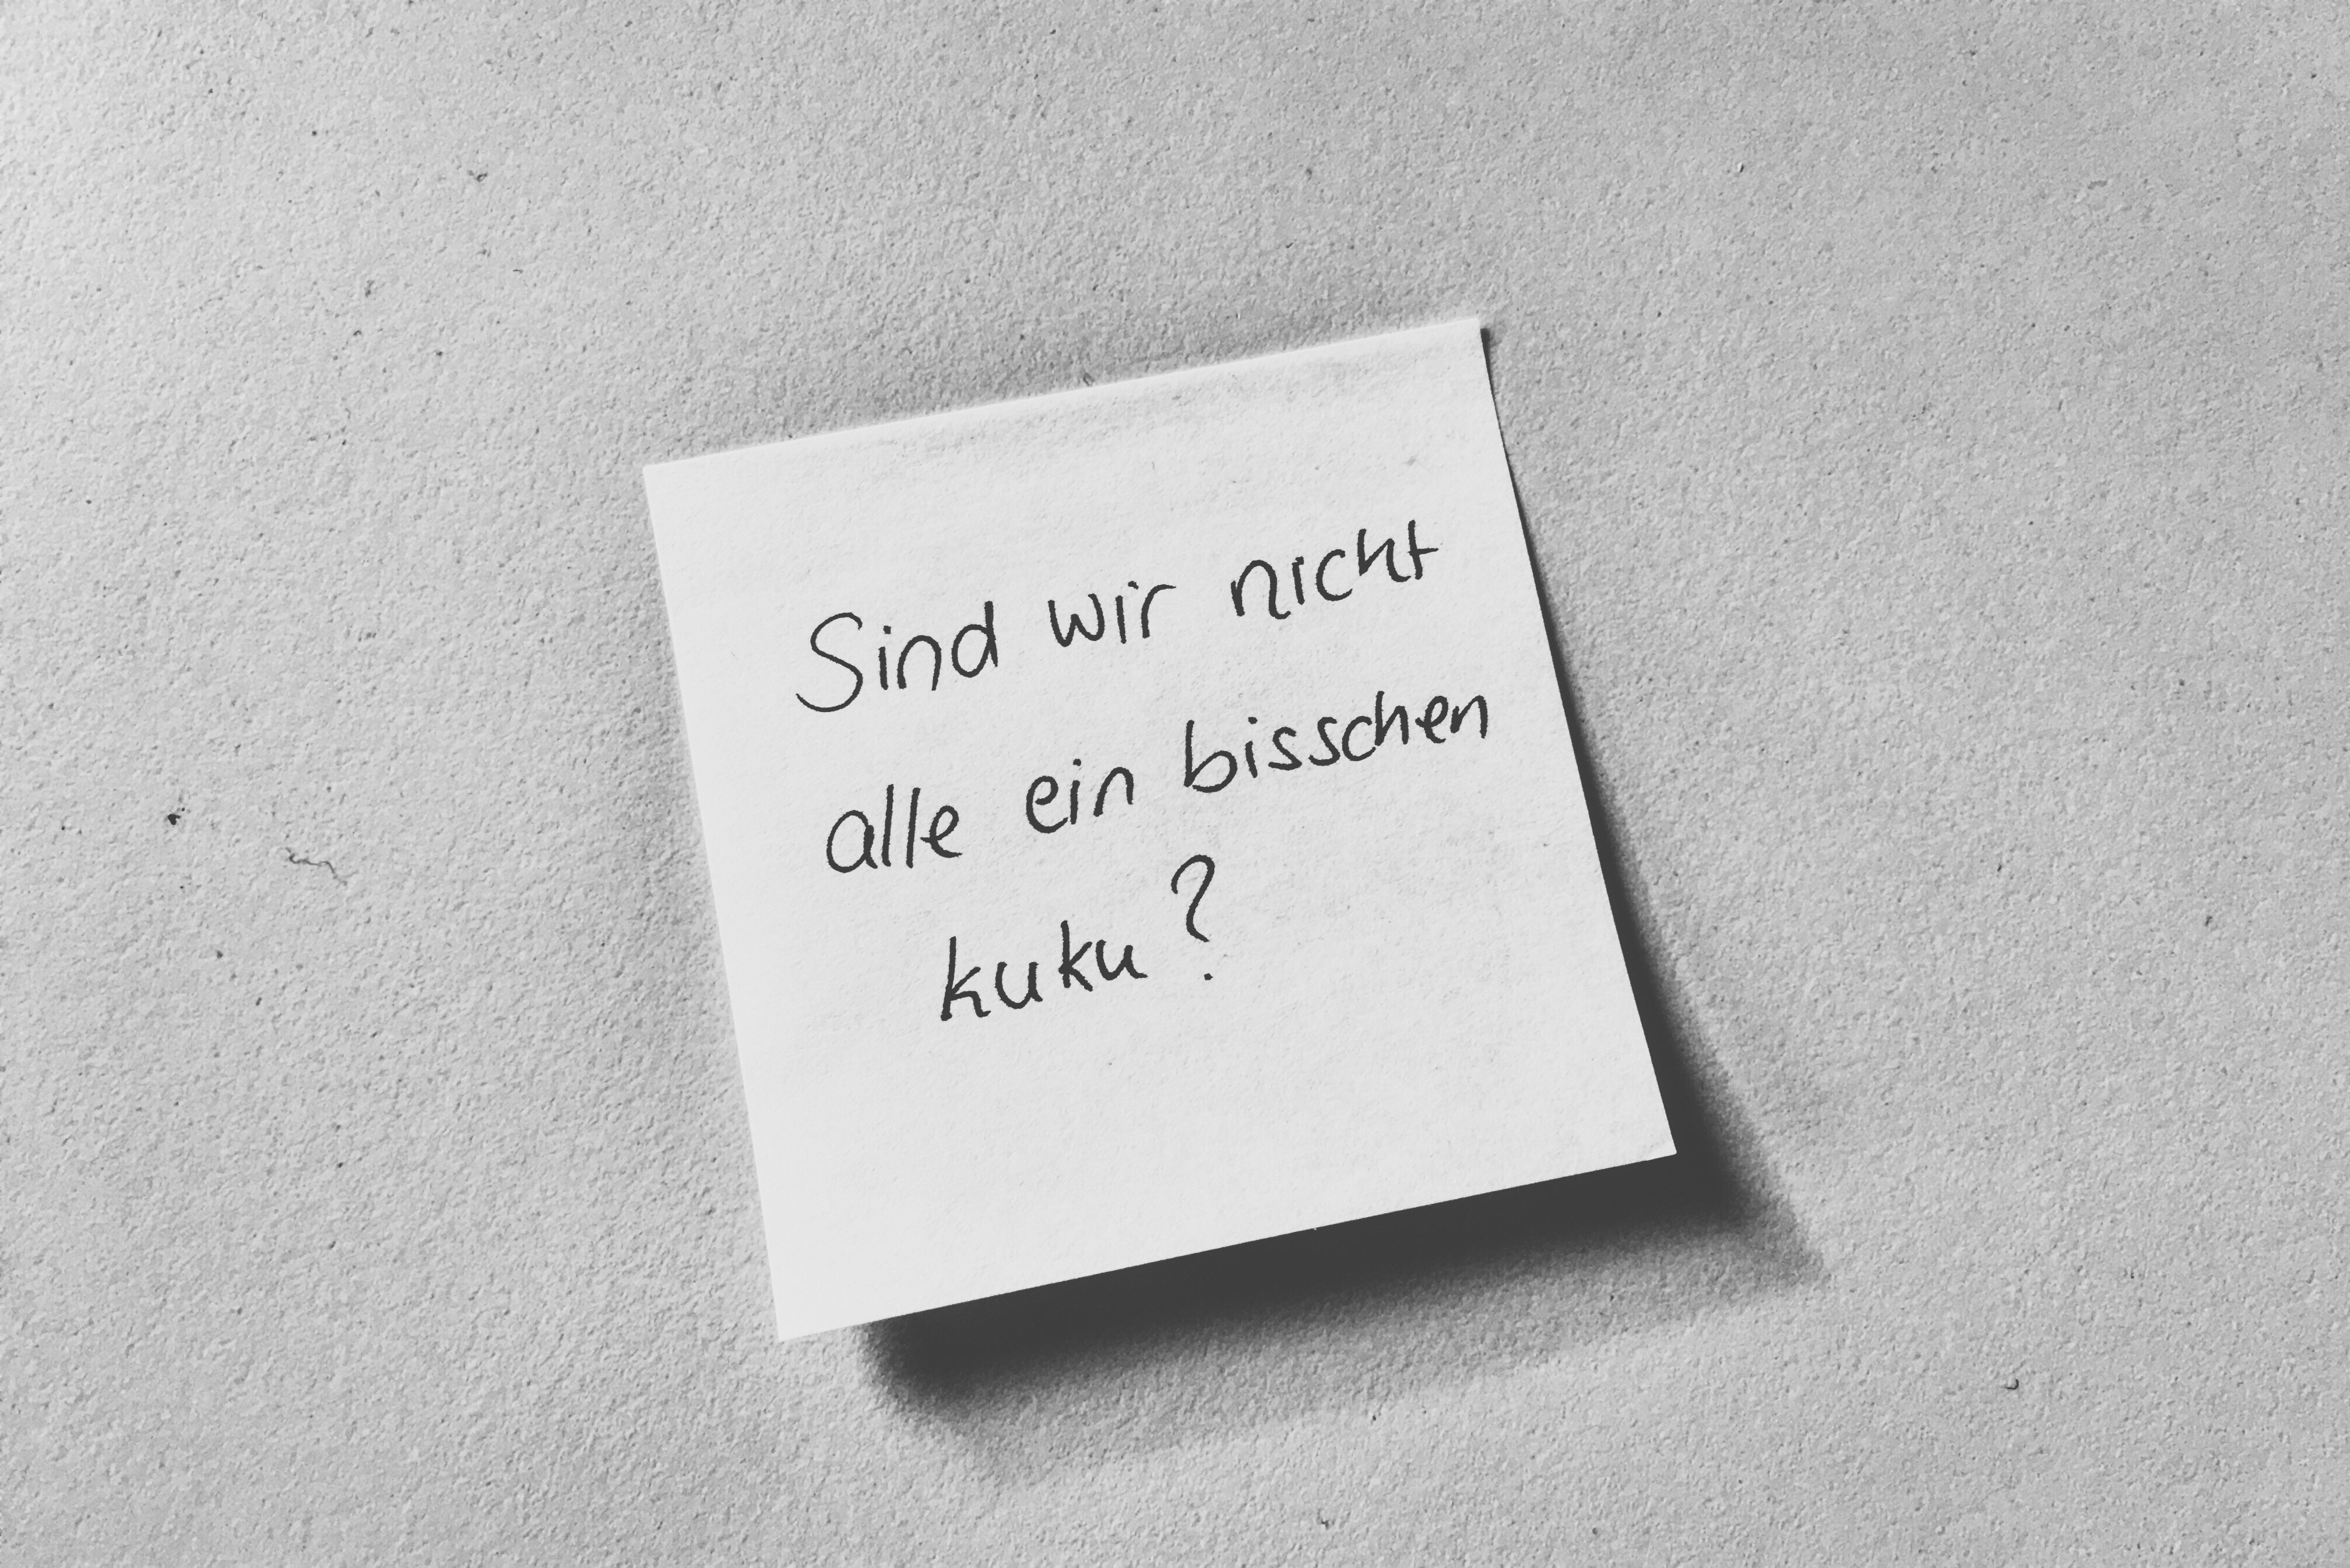 Sind wir nicht
alle ein bisschen
kuku?